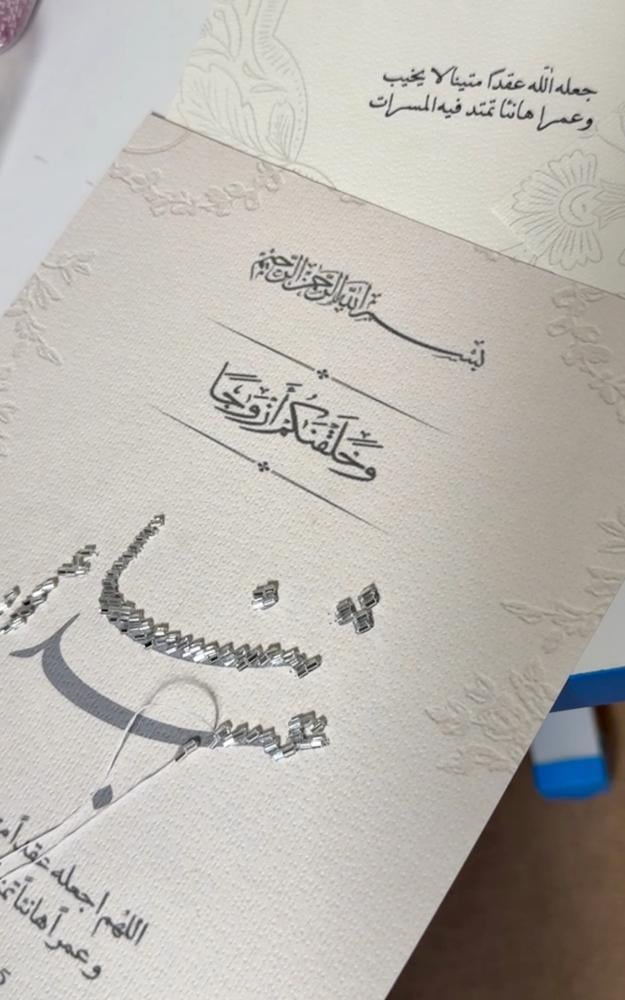 جعله الله عقدا متينا لا يخيب
وعمرا هانئا تمتد فيه المسرات
بسم الله الرحمن الرحيم
وَخَلَقْنَكُمْ أَزْوَجًا
اللهم اجعله عقداً
وعمراً هانئاً